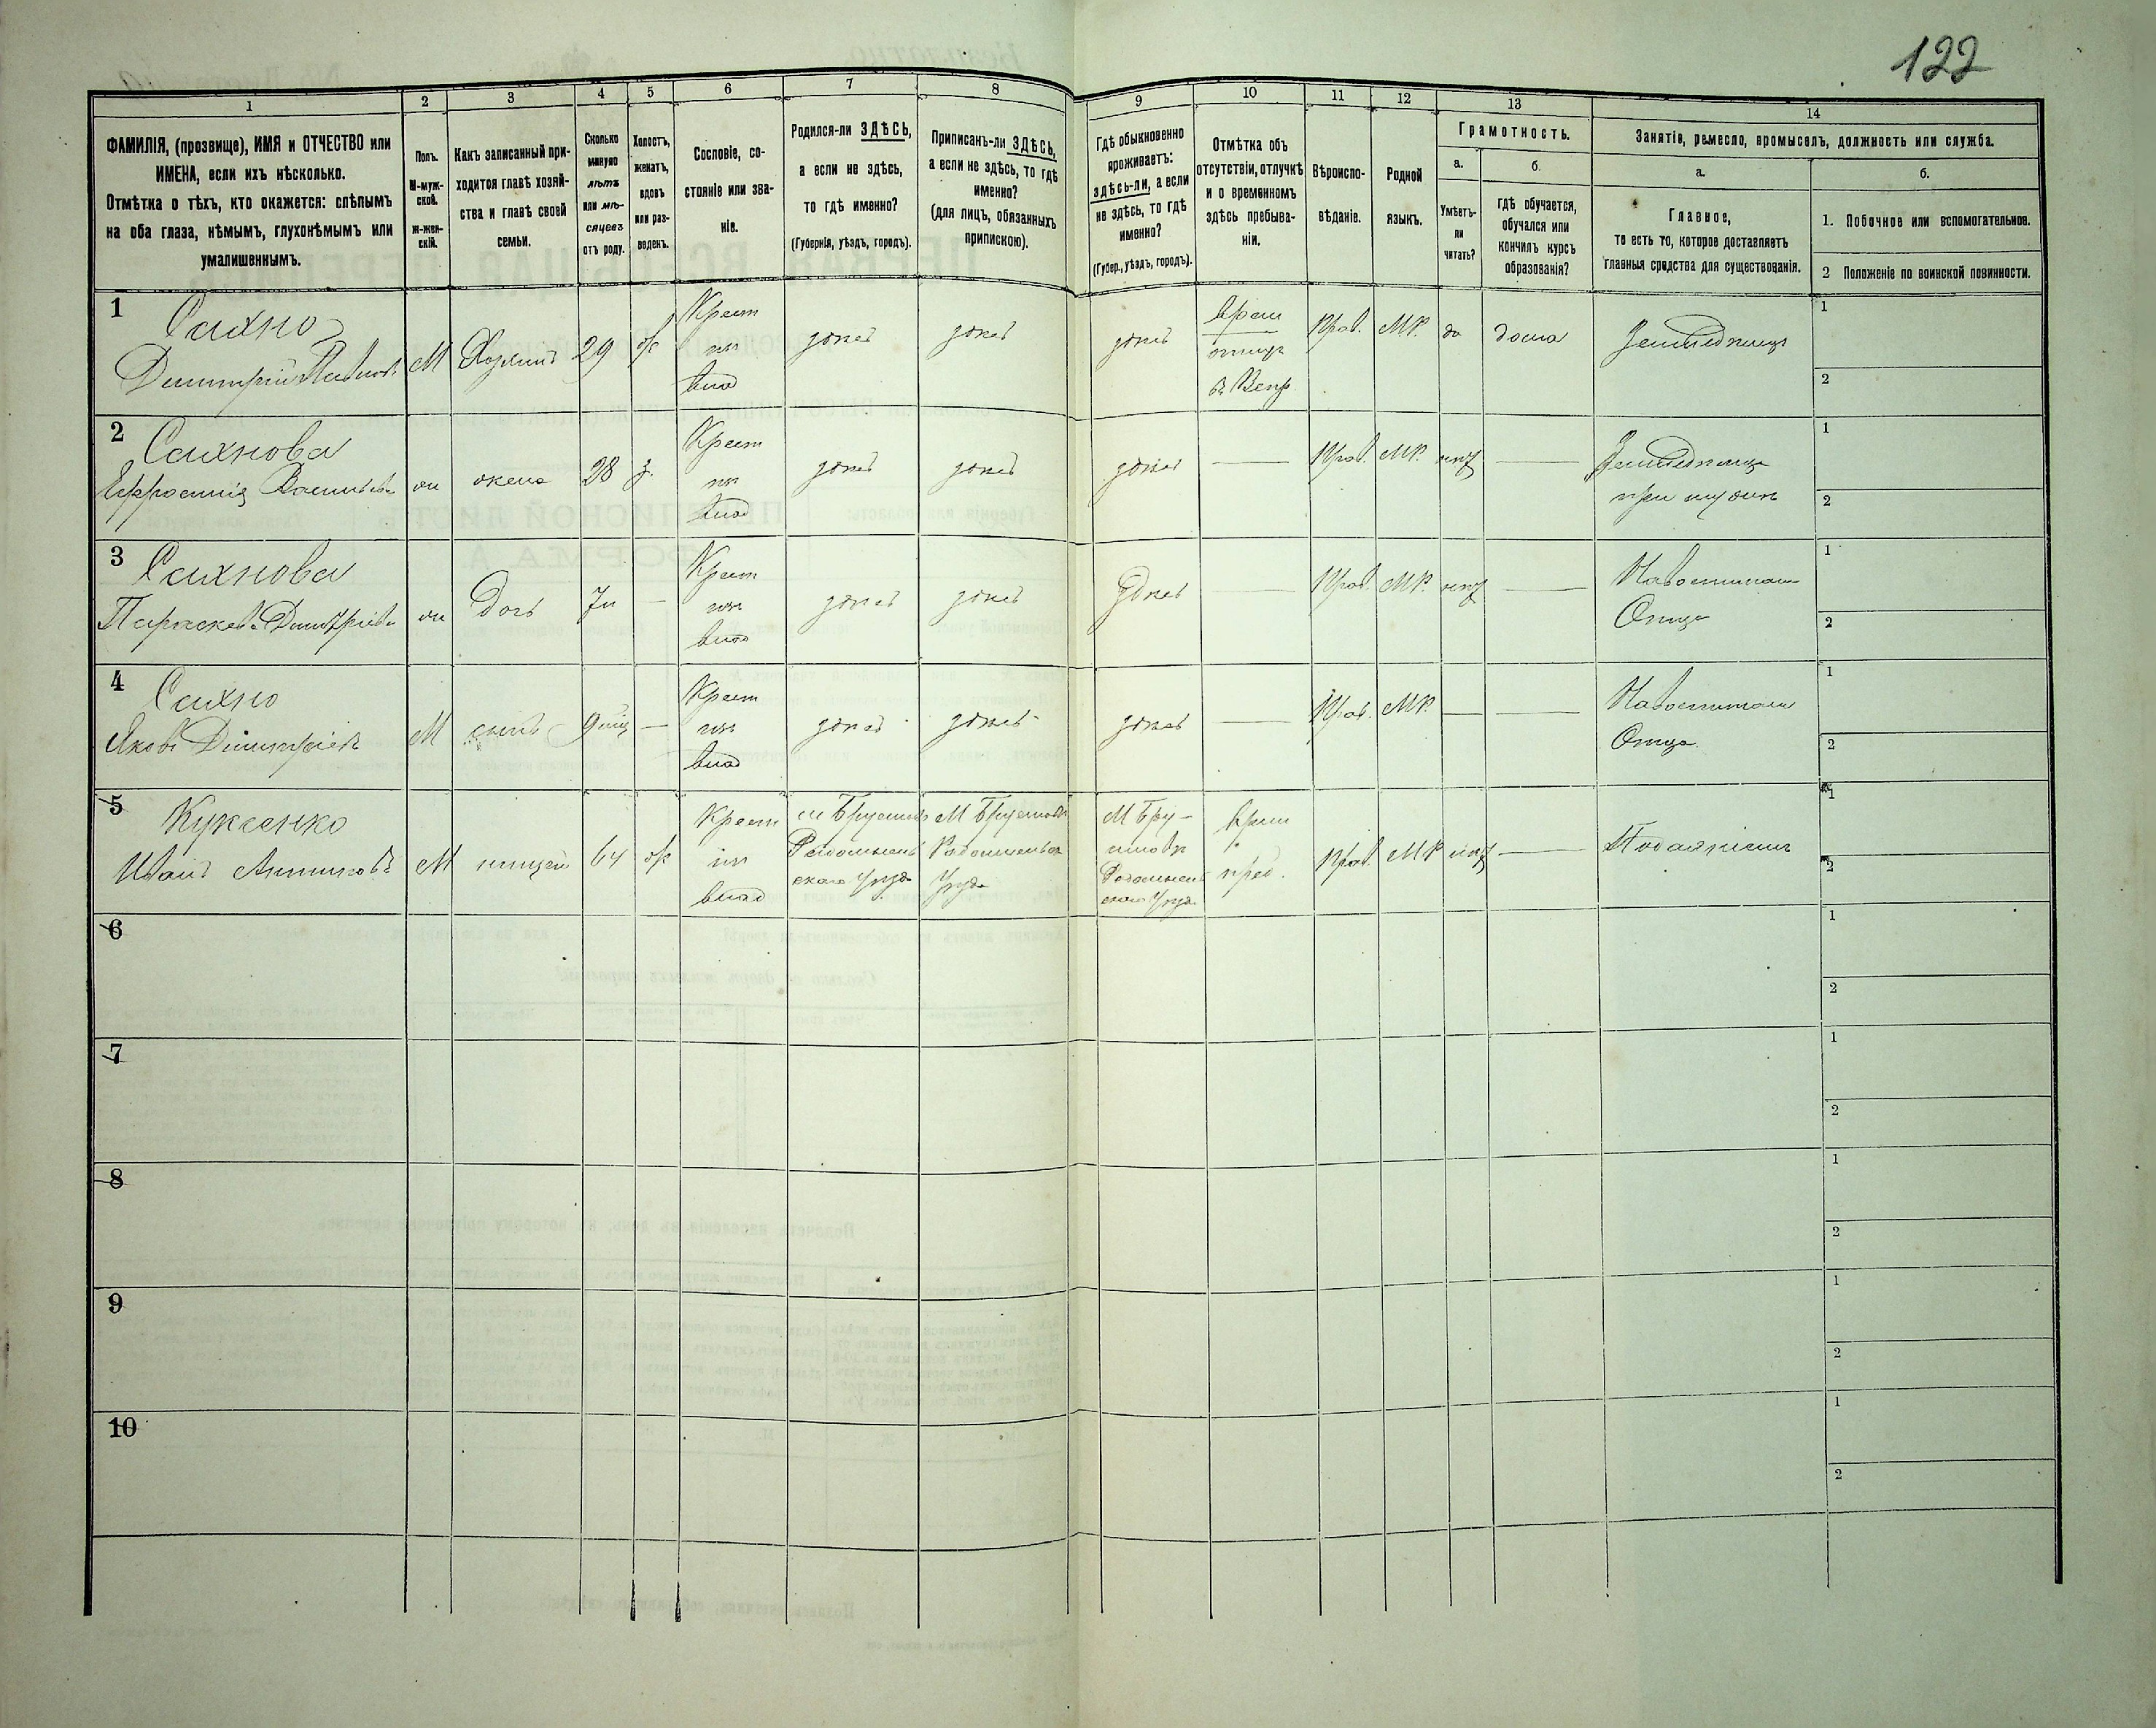 122
1 2 3 4 5 6 7 8 9 10 11 12 13 14
ФАМИЛІЯ, (прозвище), ИМЯ и ОТЧЕСТВО или
ИМЕНА, если ихъ нѣсколько.
Отмѣтка о тѣхъ, кто окажется: слѣпымъ
на оба глаза, нѣмымъ, глухонѣмымъ или
умалишеннымъ.
Полъ.
М-муж-
ской.
ж-жен-
скій.
Какъ записанный при-
ходится главѣ хозяй-
ства и главѣ своей
семьи.
Сколько
минуло
лѣтъ
или мѣ-
сяцевъ
отъ роду.
Холостъ,
женатъ,
вдовъ
или раз-
веденъ.
Сословіе, со-
стояніе или зва-
ніе.
Родился-ли ЗДѢСЬ,
а если не здѣсь,
то гдѣ именно?
(Губернія, уѣздъ, городъ).
Приписанъ-ли ЗДѢСЬ,
а если не здѣсь, то гдѣ
именно?
(для лицъ, обязанныхъ
припискою).
Гдѣ обыкновенно
проживаетъ:
здѣсь-ли, а если
не здѣсь, то гдѣ
именно?
(Губер., уѣздъ, городъ).
Отмѣтка объ
отсутствіи, отлучкѣ
и о временномъ
здѣсь пребыва-
ніи.
Вѣроиспо-
вѣданіе.
Родной
языкъ.
Грамотность.
а.
Умѣетъ-
ли
читать?
б.
гдѣ обучается,
обучался или
кончилъ курсъ
образованія?
Занятія, ремесло, промыселъ, должность или служба.
а.
Главное,
то есть то, которое доставляетъ
главныя средства для существованія.
б.
1. Побочное или вспомогательное.
2 Положеніе по воинской повинности.
1 Сахно
Димитрій М Хозяинъ 29 ж Крест
из
влад здѣсь здѣсь здѣсь врем
отлуч
в Прав. МР да дома Земледѣлецъ
1
2
2 Сахнова
Ефросинія Васильева ж жена 28 з. Крест
из
влад здѣсь здѣсь здѣсь — Прав. МР. нѣт —
при мужѣ
1
2
3 Сахнова
Параскева Димитріева ж Дочь 7 — Крест
из
влад здѣсь здѣсь здѣсь — Прав. МР. нѣт —
Отца
1
2
4 Сахно
Яковъ Димитріевъ М сынъ 9 — Крест
из
влад здѣсь здѣсь здѣсь — Прав. МР. — —
Отца
1
2
5 Кукленко
Иванъ М нищій 64 ж Крест
из
влад
М Брусиловъ
Уѣзда
М Бру-
силовъ
Уѣзда
врем
преб. Прав. МР нѣт — Подаяніемъ
1
2
6
1
2
7
1
2
8
1
2
9
1
2
10
1
2